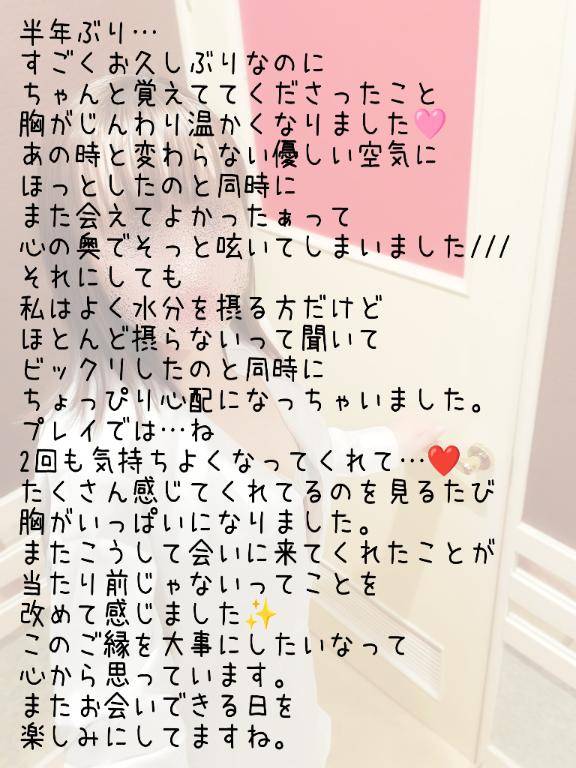 半年ぶり…
すごくお久しぶりなのに
ちゃんと覚えててくださったこと
胸がじんわり温かくなりました🩷
あの時と変わらない優しい空気に
ほっとしたのと同時に
また会えてよかったぁって
心の奥でそっと呟いてしまいました///
それにしても
私はよく水分を摂る方だけど
ほとんど摂らないって聞いて
ビックリしたのと同時に
ちょっぴり心配になっちゃいました。
プレイでは…ね
2回も気持ちよくなってくれて…❤️
たくさん感じてくれてるのを見るたび
胸がいっぱいになりました。
またこうして会いに来てくれたことが
当たり前じゃないってことを
改めて感じました✨
このご縁を大事にしたいなって
心から思っています。
またお会いできる日を
楽しみにしてますね。